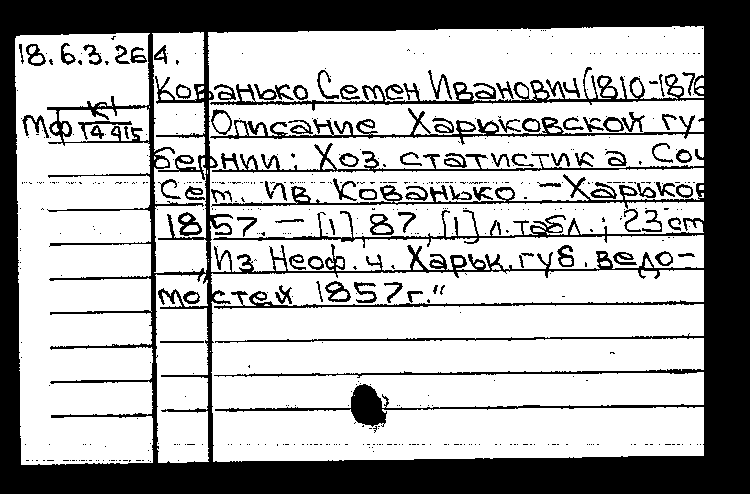 18.6.3.264.
Кованько, Семен Иванович (1810-1876
Мф К1
14 415
Описание Харьковской гу-
бернии: Хоз. статистика. Соч
Сем. Ив. Кованько. — Харьков
1857. — [1], 87, [1] л. табл.; 23 cm
Из „Неоф. ч. Харьк. губ. ведо-
мостей 1857г."